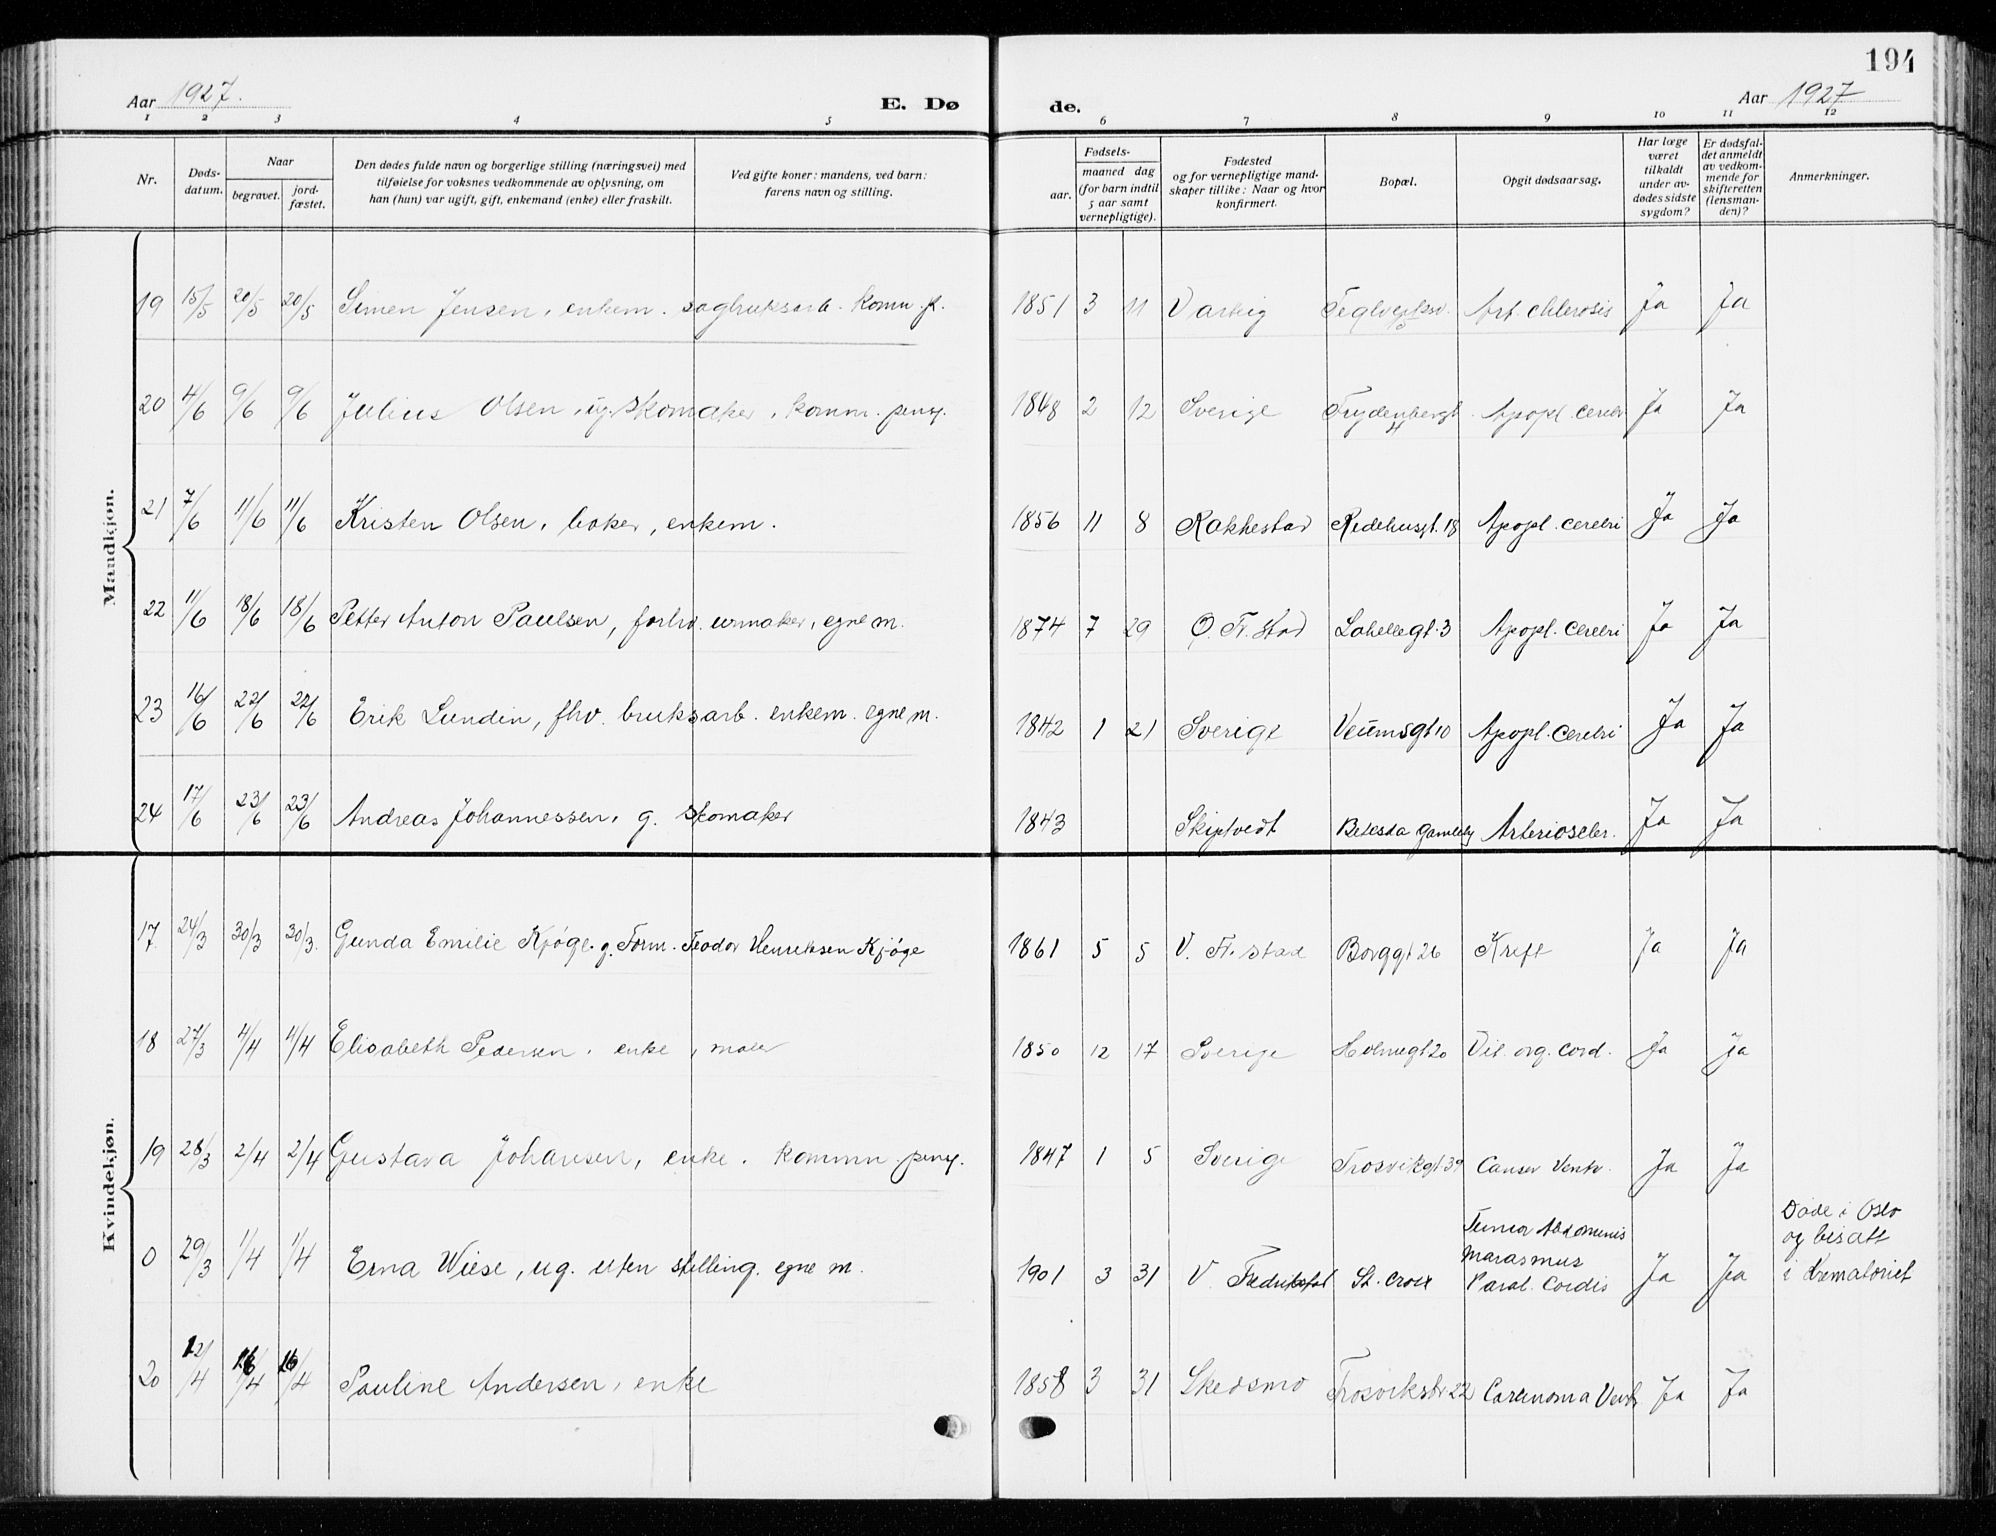 194
Aar 1927. E. Dø de. Aar 1927
1 2 3 4 5 6 7 8 9 10 11 12
Nr.
Døds-
datum.
Naar
begravet.
jord-
fæstet.
Den dødes fulde navn og borgerlige stilling (næringsvei) med
tilføielse for voksnes vedkommende av oplysning, om
han (hun) var ugift, gift, enkemand (enke) eller fraskilt.
Ved gifte koner: mandens, ved barn:
farens navn og stilling.
Fødsels-
aar.
maaned dag
(for barn indtil
5 aar samt
vernepligtige).
Fødested
og for vernepligtige mand-
skaper tillike: Naar og hvor
konfirmert.
Bopæl.
Opgit dødsaarsag.
Har læge
været
tilkaldt
under av-
dødes sidste
sygdom?
Er dødsfal-
det anmeldt
av vedkom-
mende for
skifteretten
(lensman-
den)?
Anmerkninger.
Mandkjøn.
19 15/5 20/5 20/5 Simen Jensen, enkem. sagbruksarb. Kom. p. 1851 3 11 Varteig Ja Ja
20 4/6 9/6 9/6 Julius Olsen, ug. skomaker, komm. pensj. 1848 2 12 Sverige Apopl. cerebr Ja Ja
21 7/6 11/6 11/6 Kristen Olsen, baker, enkem. 1856 11 8 Rakkestad 18 Apopl. cerebri Ja Ja
22 11/6 18/6 18/6 Petter Anton Paulsen, forhv. urmaker, egne m. 1874 7 29 Ø. Fr. stad Lahellegt. 3 Apopl. cerebri Ja Ja
23 16/6 22/6 22/6 Erik Lundin, fhv. bruksarb. enkem. egne m. 1842 1 21 Sverige Veumsgt 10 Apopl. cerebri Ja Ja
24 17/6 23/6 23/6 Andreas Johannessen, g. skomaker 1843 Skiptvedt Betesda Gamleby Arterioscler. Ja Ja
Kvindekjøn.
17 24/3 30/3 30/3. Gunda Emilie Kjøge. g. Form. Teodor Henriksen Kjøge 1861 5 5 V. Fr. stad Borggt 26 Kreft Ja Ja
18 27/3 4/4 4/4 Elisabeth Pedersen, enke, maler 1850 12 17 Sverige Holmegt 20 Vit. org. cord. Ja Ja
19 28/3 2/4 2/4 Gustava Johansen, enke. kommn. pensj. 1847 1 5 Sverige Trosvikgt. 39 Canser Ventr. Ja Ja
0 29/3 1/4 1/4 Erna Wiese, ug. uten stilling. egne m. 1901 3 31 V. Fredrikstad St. Croix Tumor Abdominis
Marasmus
Paral. Cordis Ja Ja Døde i Oslo
og bisatt
i Krematoriet
20 12/4 16/4 16/4 Pauline Andersen, enke 1858 3 31 Skedsmo Trosvikstr 22 Carcinoma Ventr. Ja Ja